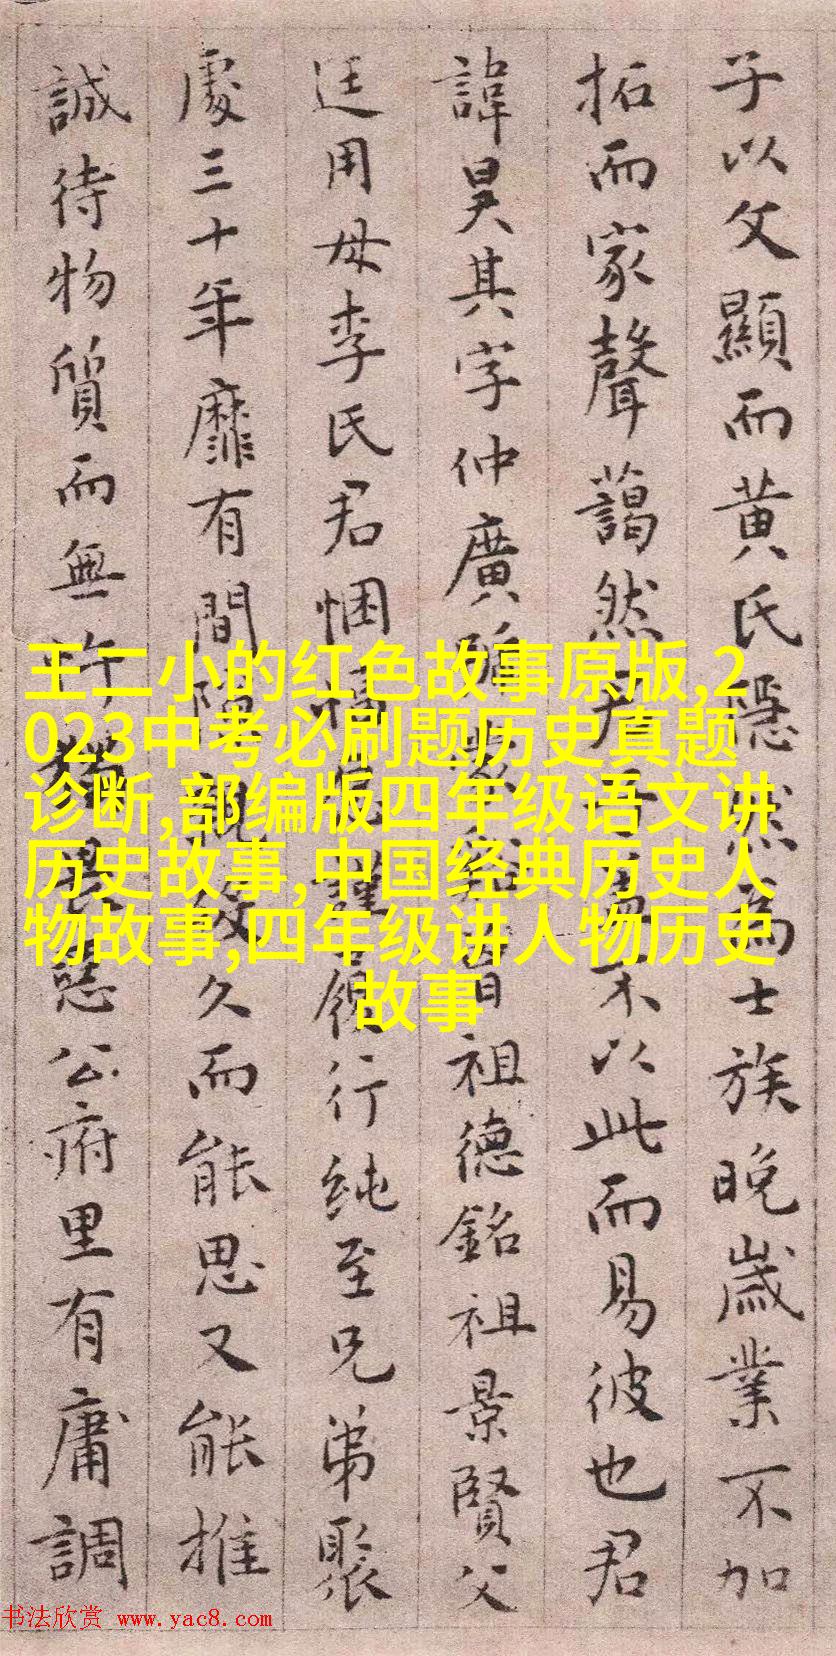 子以父顯而黃氏隱然為士族晚歲業不加
拓而家聲藹然君子不以此而易彼也君
諱昊其字仲廣曾祖德銘祖景賢父
廷用母李氏君悃愊謹履行純至兄弟聚
處三十年靡有間久而能思又能推
誠待物質而無公府里有庸調
王二小的红色故事原版,2
023中考必刷题历史真题
诊断,部编版四年级语文讲
历史故事,中国经典历史人
物故事,四年级讲人物历史
故事
书法欣赏 www.yac8.com